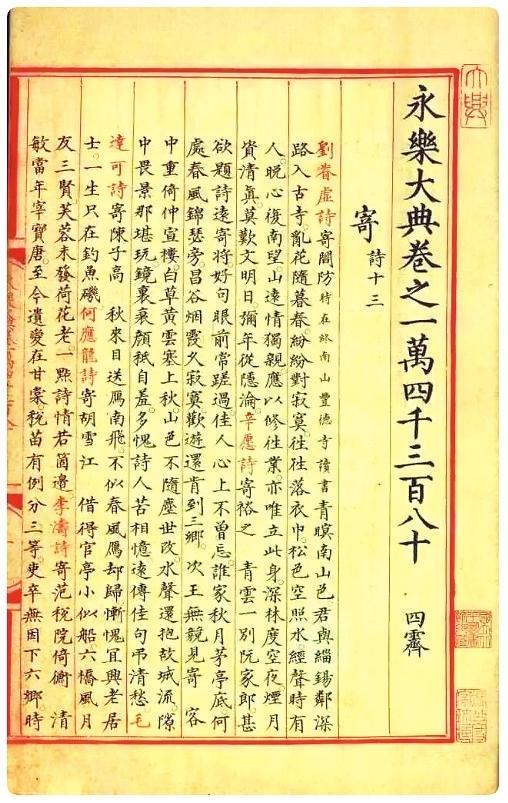 永樂大典卷之一萬四千三百八十 四霽
寄 詩十三
劉眘虛詩寄閻防 時在終南山豐德寺讀書 青暝南山色君與緇錫鄰深
路入古寺亂花隨暮春紛紛對寂寞徃徃落衣巾松色空照水經聲時有
人晚心復南望山遠情獨親應以修徃業亦唯立此身深林度空夜煙月
資清真莫歎文明日彌年從隱淪辛愿詩寄裕之 青雲一別阮家郎甚
欲題詩遠寄將好句眼前常蹉過佳人心上不曾忘誰家秋月茅亭底何
處春風錦瑟旁昌谷烟霞久寂寞歡遊還肯到三鄉 次王無競見寄 客
中重倚仲宣樓白草黃雲塞上秋山色不隨塵世改水聲還抱故城流隙
中畏景那堪玩鏡裏衰顏秪自羞多愧詩人苦相憶遠傳佳句弔清愁毛
達可詩寄陳子高 秋來目送鴈南飛不似春風鴈却歸慚愧宜興老居
士一生只在釣魚磯何應龍詩寄胡雪江 借得官亭小似船六橋風月
友三賢芙蓉未發荷花老一點詩情若箇邊李濤詩寄范稅院倚衡 清
敏當年宰寶唐至今遺愛在甘棠稅苗有例分三等吏卒無因下六鄉時